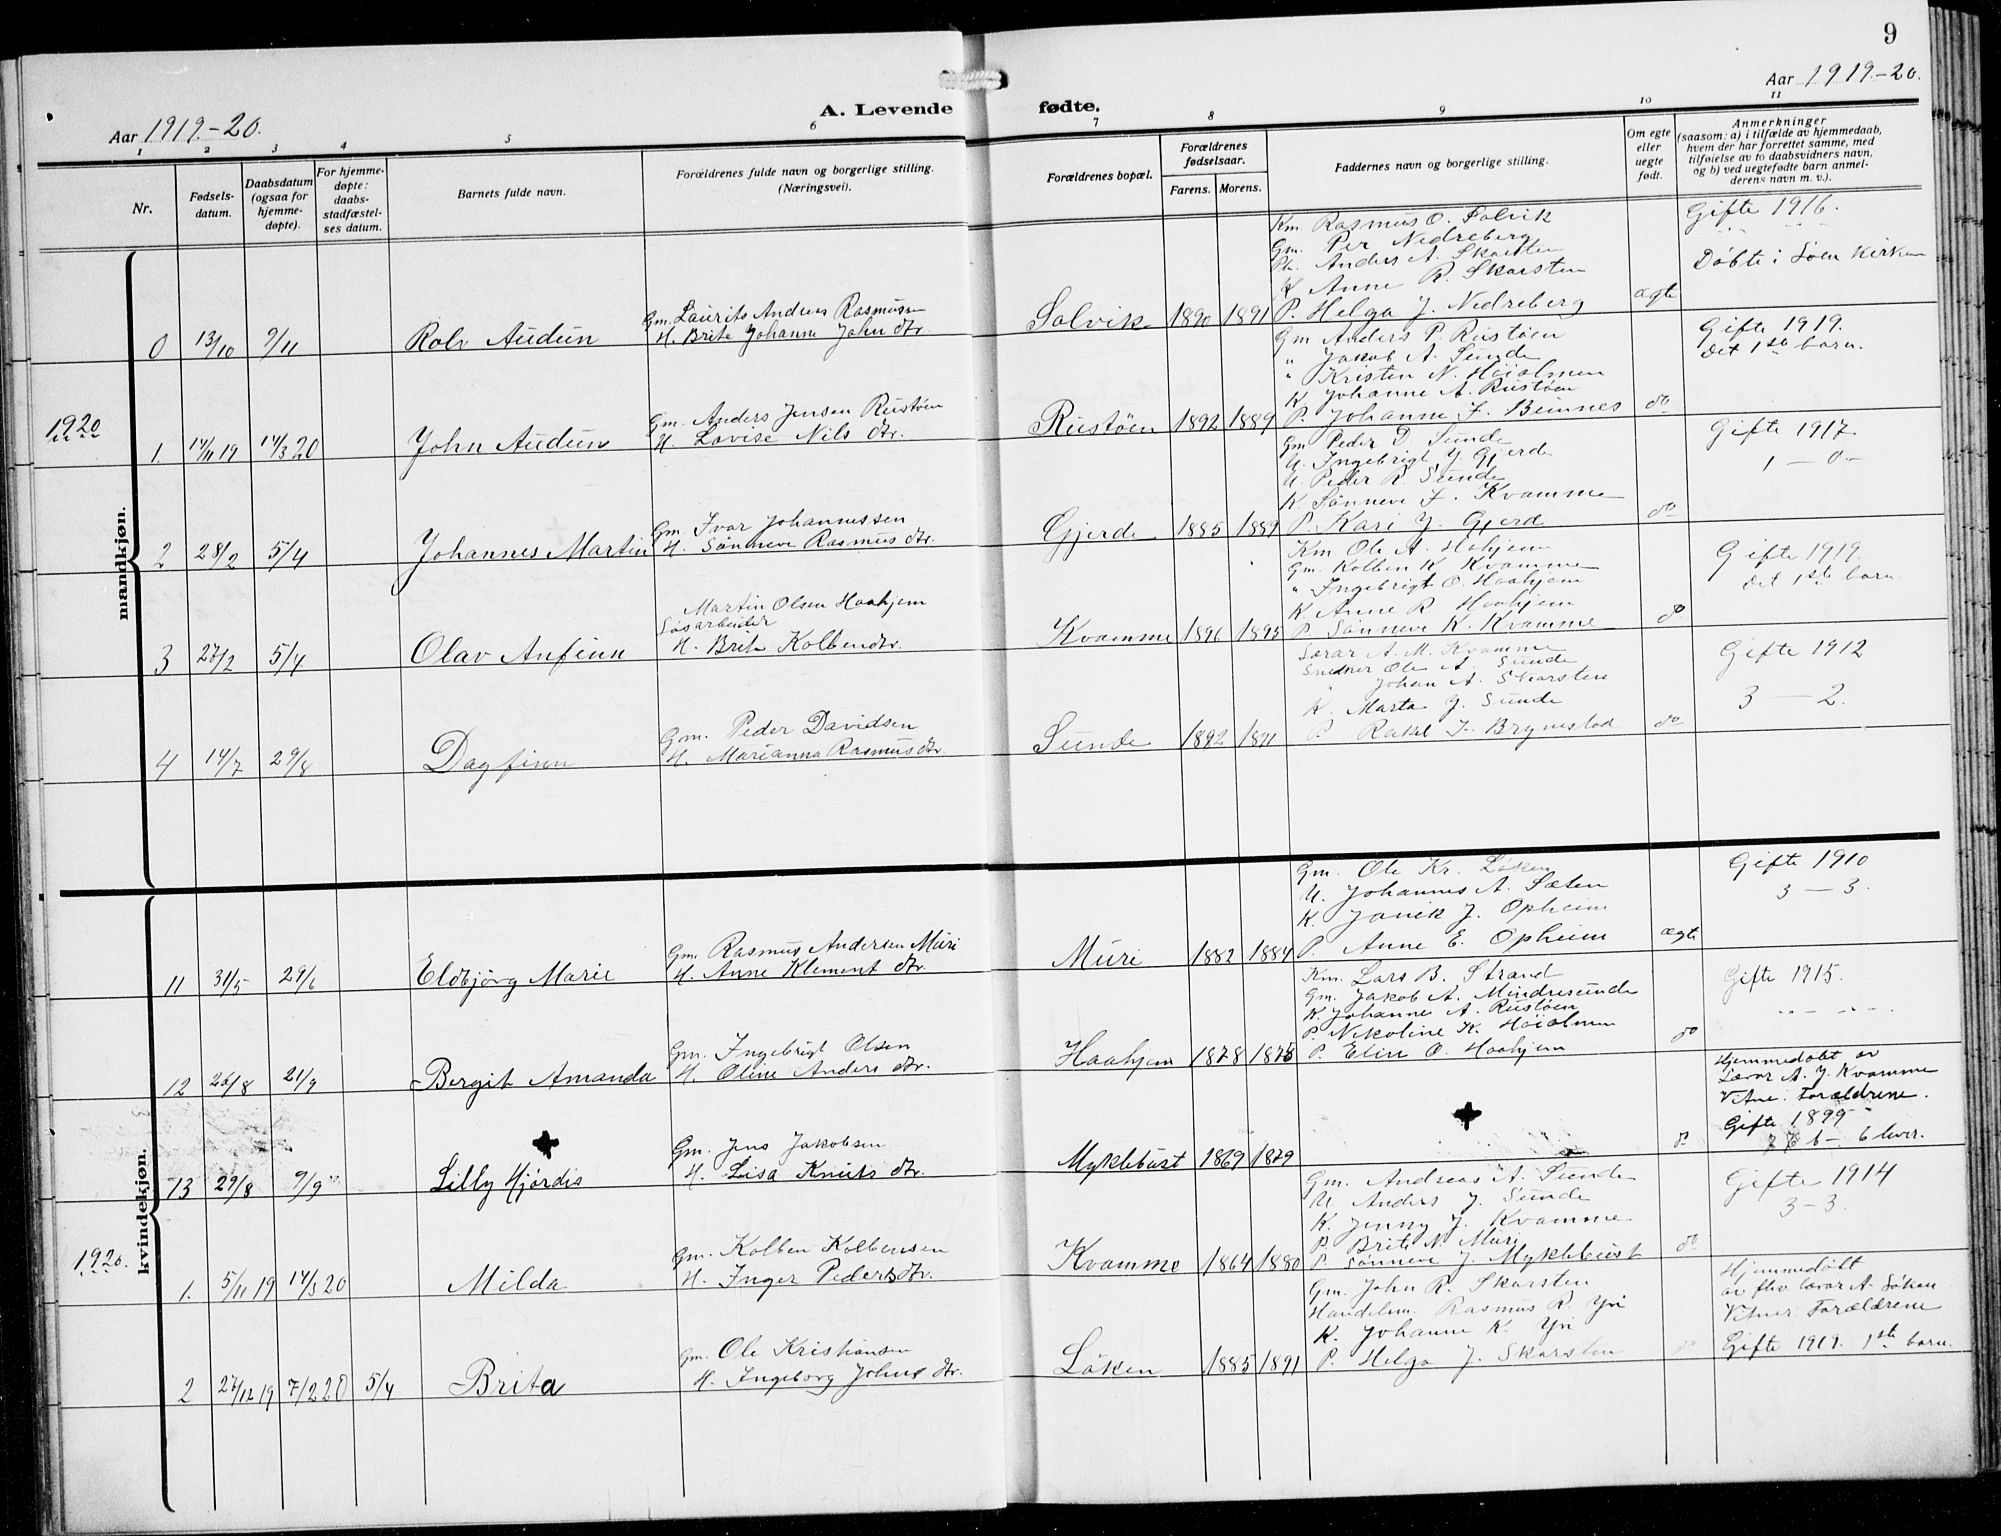 9
Aar 1919.-20.
A. Levende fødte.
Aar 1919.-20.
1 2 3 4 5 6 7 8 9 10 11
Nr.
Fødsels-
datum.
Daabsdatum
(ogsaa for
hjemme-
døpte).
For hjemme-
døpte:
daabs-
stadfæstel-
ses datum.
Barnets fulde navn.
Forældrenes fulde navn og borgerlige stilling.
(Næringsvei).
Forældrenes bopæl.
Forældrenes
fødselsaar.
Farens. Morens.
Faddernes navn og borgerlige stilling.
Om egte
eller
uegte
født.
Anmerkninger
(saasom: a) i tilfælde av hjemmedaab,
hvem der har forrettet samme, med
tilføielse av to daabsvidners navn,
og b) ved uegtefødte barn anmel-
derens navn m. v.).
mandkjøn.
0 13/10 9/11 Rolv Audun
Gm. Laurits Andreas Rasmussen
H. Brite Johanne John dtr.
Solvik 1890 1891
Km. Rasmus O. Solvik
Gm. Per Nedreberg
Anders A. Skarsten
K Anne R. Skarsten
P. Helga J. Nedreberg
ægte
Gifte 1916.
Døbte i Loen Kirken
1920
1. 14/11 19 14/3 20 John Audun
Gm. Anders Jensen Rustøen
H. Lovise Nils dtr.
Rustøen 1892 1889
Gm Anders P. Rustøen
" Jakob A. Sunde
" Kristen N. Høiolmen
K. Johanne A. Rustøen
P. Johanne J. Bennes
do
Gifte 1919.
Det 1ste barn.
2 28/2 5/4 Johannes Martin
Gm. Ivar Johannessen
H. Sønneve Rasmus dtr.
Gjerde 1885 1889
Gm Peder D. Sunde
U. Ingebrigt J. Gjerde
U. Peder R. Sunde
K Sønneve J. Kvamme
P. Kari J. Gjerd
do
Gifte 1917.
1 — 0 -
3 27/2 5/4 Olav Anfinn
Martin Olsen Haahjem
H. Brite Kolbendtr.
Kvamme 1896 1895
Km Ole A. Haahjem
Gm. Kolben K. Kvamme
" Ingebrigt O. Haahjem
K Anne R. Haahjem
P. Sønneve K. Kvamme
do
Gifte 1919.
Det 1ste barn.
4 14/7 29/8 Dagfinn
Gm. Peder Davidsen
H. Marianna Rasmusdtr.
Sunde 1892 1891
Lærar A. M. Kvamme
Snedker Ole A. Sunde
" Johan A. Skarsten
K. Marta J. Sunde
P. Rakel J. Brynestad
do
Gifte 1912
3 — 2.
kvindekjøn.
11 31/5 29/6 Eldbjörg Marie
Gm. Rasmus Andersen Muri
H. Anne Klement dtr.
Muri 1882 1884
Gm. Ole Kr. Løken
U. Johannes A. Sæten
K. Janik J. Opheim
P. Anne E. Opheim
ægte
Gifte 1910
3 — 3.
12 26/8 21/9 Bergit Amanda
Gm. Ingebrigt Olsen
H. Oline Anders dtr.
Haahjem 1878 1875
Km. Lars B. Strand
Gm. Jakob A. Mindresunde
K. Johanne A. Rustøen
P. Nikoline K. Høiolmen
P. Eline O. Haahjem
do
Gifte 1915.
13 29/8 9/9 Lilly Hjördis
Gm. Jens Jakobsen
H. Lisa Knuts dtr.
Myklebust 1869 1879
do
Hjemmedøbt av
Lærar A. J. Kvamme
Vitne: Forældrene.
Gifte 1899
6 lever.
1920.
1. 5/11 19 14/3 20 Milda
Gm. Kolben Kolbensen
H. Inger Peders dtr.
Kvamme 1864 1880
Gm. Andreas A. Sunde
U. Anders J. Sunde
K. Jenny J. Kvamme
P. Brite N. Muri
P. Sønneve J. Myklebust
do
Gifte 1914
3-3.
2 27/12 19 7/2 20 5/4 Brita
Gm. Ole Kristiansen
H. Ingeborg Johns dtr.
Løken 1885 1891
Gm. John R. Skarsten
Handelsm. Rasmus R. Yri
K. Johanne K. Yri
P. Helga J. Skarsten
do
Hjemmedøbt
av fhv. lærar A. Løken
Vitner: Forældrene
Gifte 1919. 1ste barn.